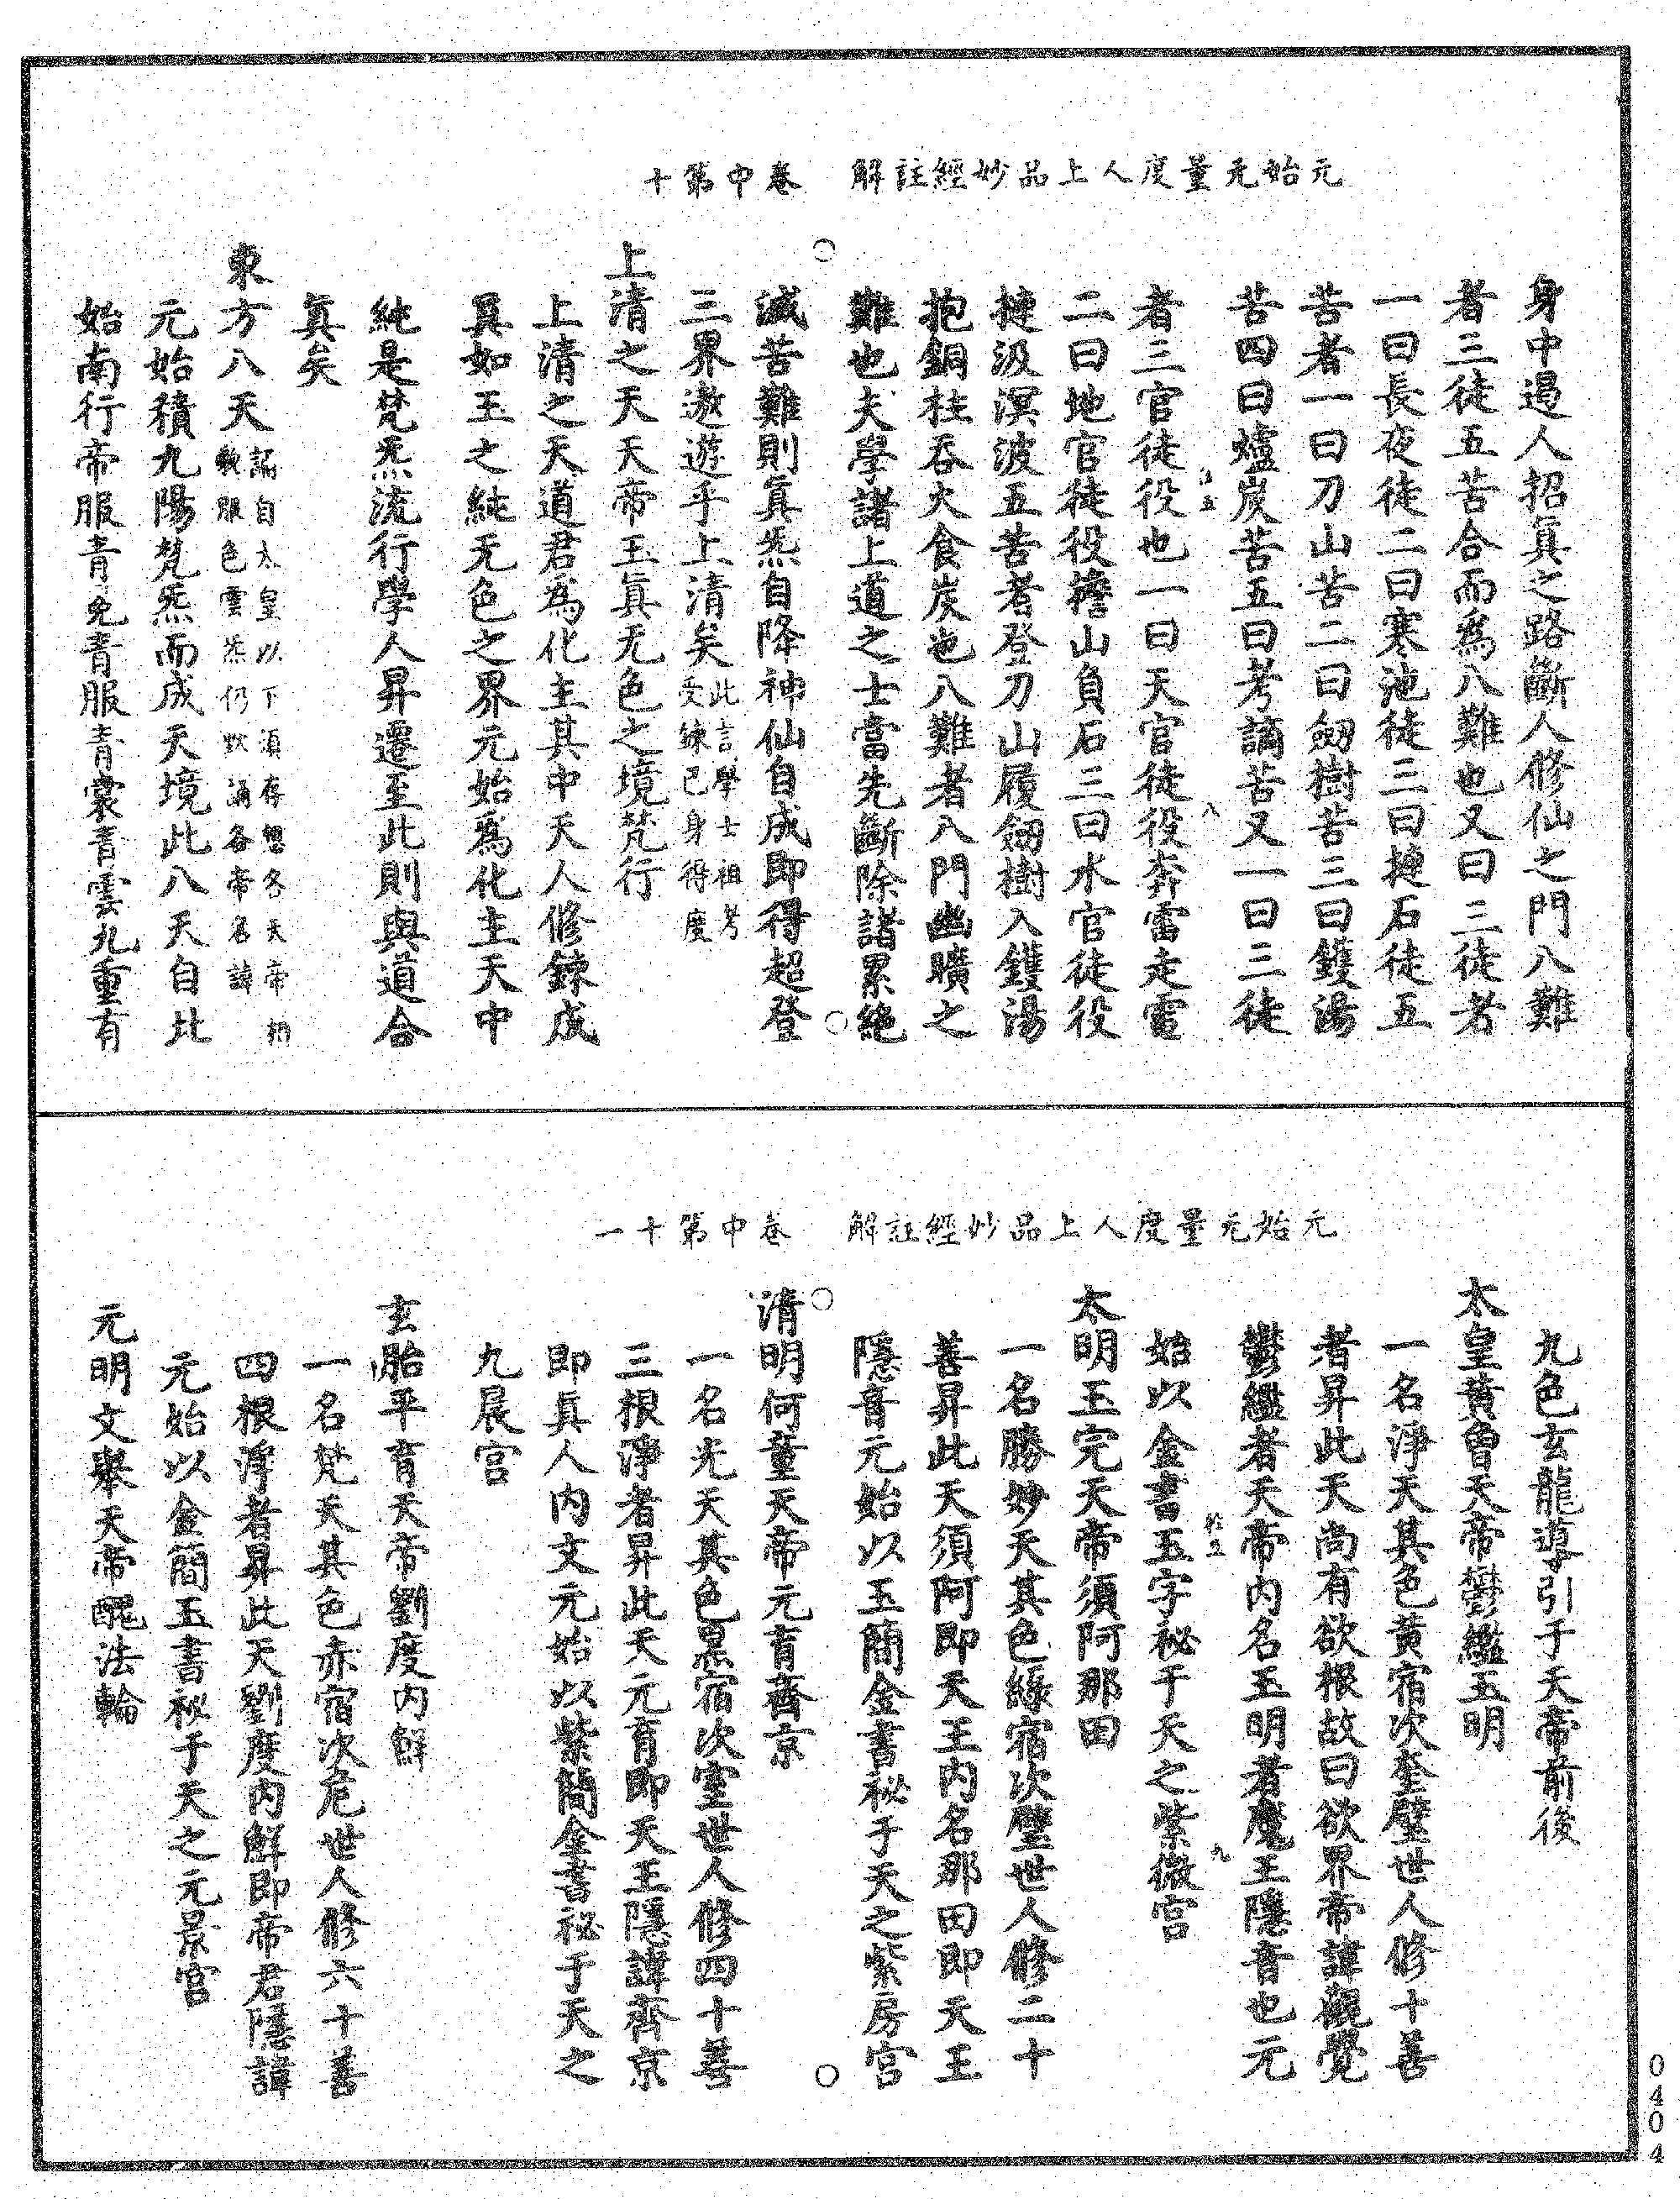 元始无量度人上品妙經註解　卷中第十
身中遏人招眞之路斷人修仙之門八難
者三徒五苦合而爲八難也又曰三徒者
一曰長夜徒二曰寒池徒三曰揵石徒五
苦者一曰刀山苦二曰劒樹苦三曰鑊湯
苦四曰爐炭苦五曰考謫苦又一曰三徒
者三官徒役也一曰天官徒役奔雷走電
二曰地官徒役擔山負石三曰水官徒役
揵汲溟波五苦者登刀山履劒樹入鑊湯
抱銅柱吞火食炭也八難者八門幽曠之
難也夫學諸上道之士當先斷除諸累絕
滅苦難則眞炁自降神仙自成即得超登
三界遨遊乎上清矣此言學士祖考受鍊已身得度
上清之天天帝玉眞无色之境梵行
上清之天道君爲化主其中天人修鍊成
眞如玉之純无色之界元始爲化主天中
純是梵炁流行學人昇遷至此則與道合
眞矣
東方八天誦自太皇以下須存想各天帝相貌服色雲炁仍默誦各帝名諱
元始積九陽梵炁而成天境此八天自北
始南行帝服青冕青服青裳青雲九重有
元始无量度人上品妙經註解　卷中第十一
九色玄龍導引于天帝前後
太皇黃曾天帝鬱繿玉明
一名淨天其色黃宿次奎壁世人修十善
者昇此天尚有欲根故曰欲界帝諱觀覺
鬱繿者天帝內名玉明者魔王隱音也元
始以金書玉字祕于天之紫微宮
太明玉完天帝須阿那田
一名勝妙天其色綠宿次壁世人修二十
善昇此天須阿即天王內名那田即天王
隱音元始以玉簡金書祕于天之紫房宮
清明何童天帝元育齊京
一名光天其色黑宿次室世人修四十善
三根淨者昇此天元育即天王隱諱齊京
即眞人內文元始以紫簡金書祕于天之
九晨宮
玄胎平育天帝劉度內鮮
一名梵天其色赤宿次危世人修六十善
四根淨者昇此天劉度內鮮即帝君隱諱
元始以金簡玉書祕于天之元景宮
元明文舉天帝醜法輪
0404